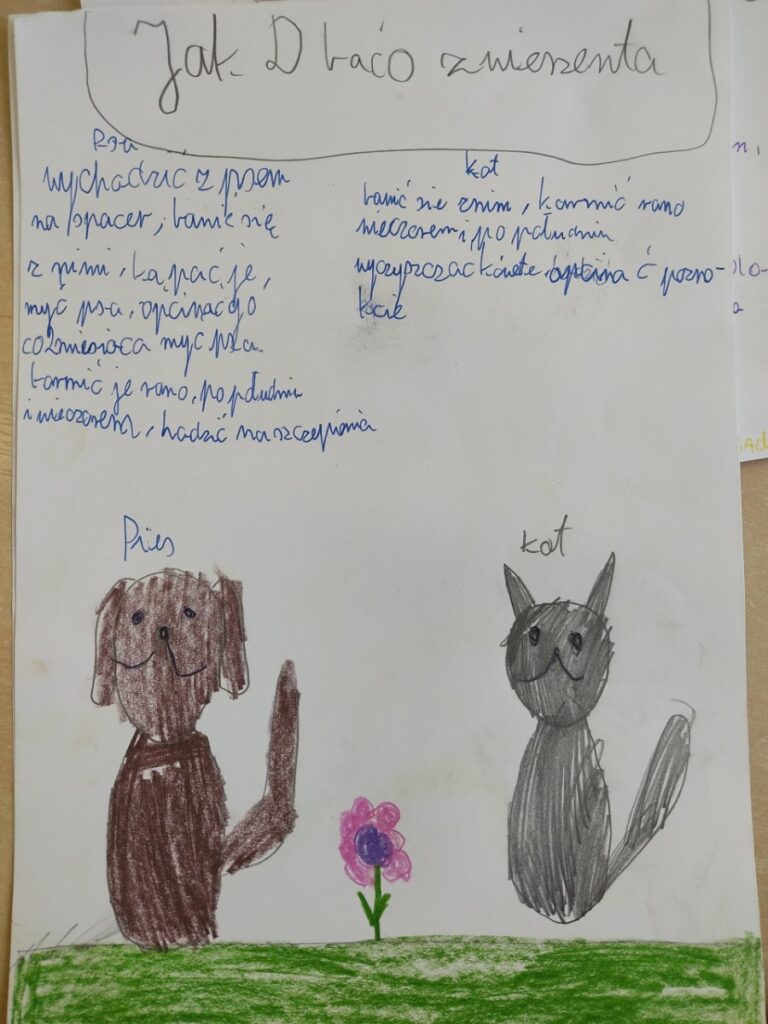 Jak Dbaćo zwierzenta
Psa
wychadzić z psem
na spacer, bawić się
z nimi, kąpać je,
myć psa, opcinać go
co2miesiąca myć psa.
karmić je rano, po południu
i wieczorem, hadzić na szczepionia
kot
bawić sie znim, karmić rano
wieczorem i po południu
wyczyszczać kówete, opcina ć pozno-
kcie
Pies
kot